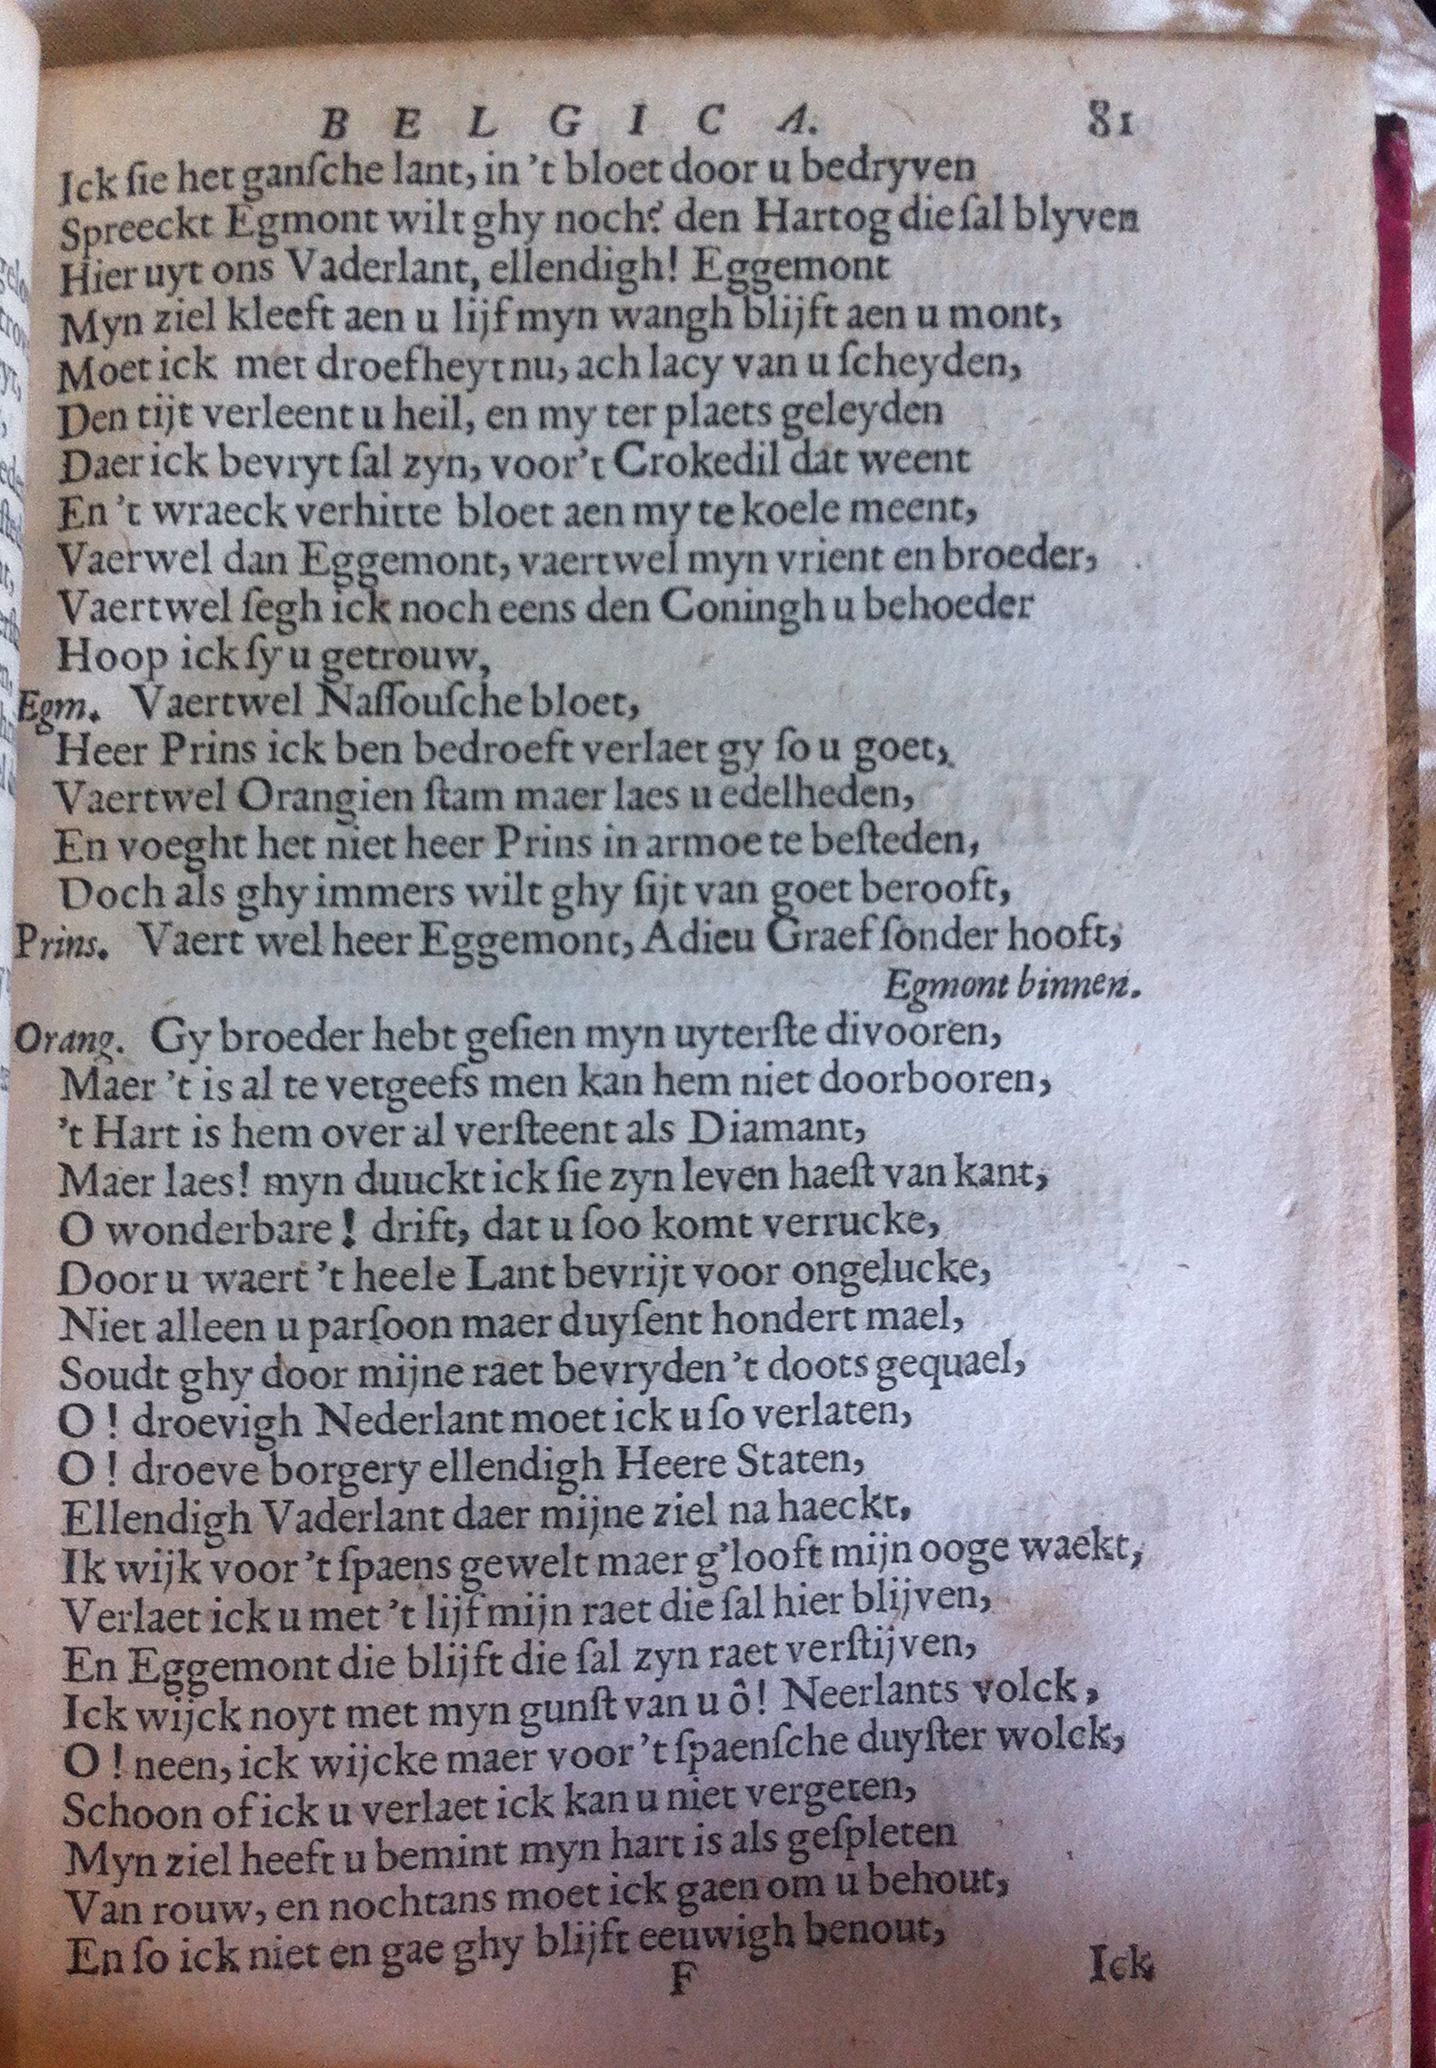 BELGICA. 81
Ick ſie het ganſche lant, in 't bloet door u bedryven
Spreeckt Egmont wilt ghy noch? den Hartog die ſal blyven
Hier uyt ons Vaderlant, ellendigh! Eggemont
Myn ziel kleeft aen u lijf myn wangh blijft aen u mont,
Moet ick met droefheyt nu, ach lacy van u ſcheyden,
Den tijt verleent u heil, en my ter plaets geleyden
Daer ick bevryt ſal zyn, voor't Crokedil dat weent
En 't wraeck verhitte bloet aen my te koele meent,
Vaerwel dan Eggemont, vaertwel myn vrient en broeder,
Vaertwel ſegh ick noch eens den Coningh u behoeder
Hoop ick ſy u getrouw,
Egm. Vaertwel Naſſouſche bloet,
Heer Prins ick ben bedroeft verlaet gy ſo u goet,
Vaertwel Orangien ſtam maer laes u edelheden,
En voeght het niet heer Prins in armoe te beſteden,
Doch als ghy immers wilt ghy ſijt van goet berooft,
Prins. Vaert wel heer Eggemont, Adieu Graef ſonder hooft,
Egmont binnen.
Orang. Gy broeder hebt geſien myn uyterſte divooren,
Maer 't is al te vergeefs men kan hem niet doorbooren,
't Hart is hem over al verſteent als Diamant,
Maer laes! myn duuckt ick ſie zyn leven haeſt van kant,
O wonderbare! drift, dat u ſoo komt verrucke,
Door u waert 't heele Lant bevrijt voor ongelucke,
Niet alleen u parſoon maer duyſent hondert mael,
Soudt ghy door mijne raet bevryden 't doots gequael,
O! droevigh Nederlant moet ick u ſo verlaten,
O! droeve borgery ellendigh Heere Staten,
Ellendigh Vaderlant daer mijne ziel na haeckt,
Ik wijk voor 't ſpaens gewelt maer g'looft mijn ooge waekt,
Verlaet ick u met 't lijf mijn raet die ſal hier blijven,
En Eggemont die blijft die ſal zyn raet verſtijven,
Ick wijck noyt met myn gunſt van u ô! Neerlants volck,
O! neen, ick wijcke maer voor 't ſpaenſche duyſter wolck,
Schoon of ick u verlaet ick kan u niet vergeten,
Myn ziel heeft u bemint myn hart is als geſpleten
Van rouw, en nochtans moet ick gaen om u behout,
En ſo ick niet en gae ghy blijft eeuwigh benout,
F Ick